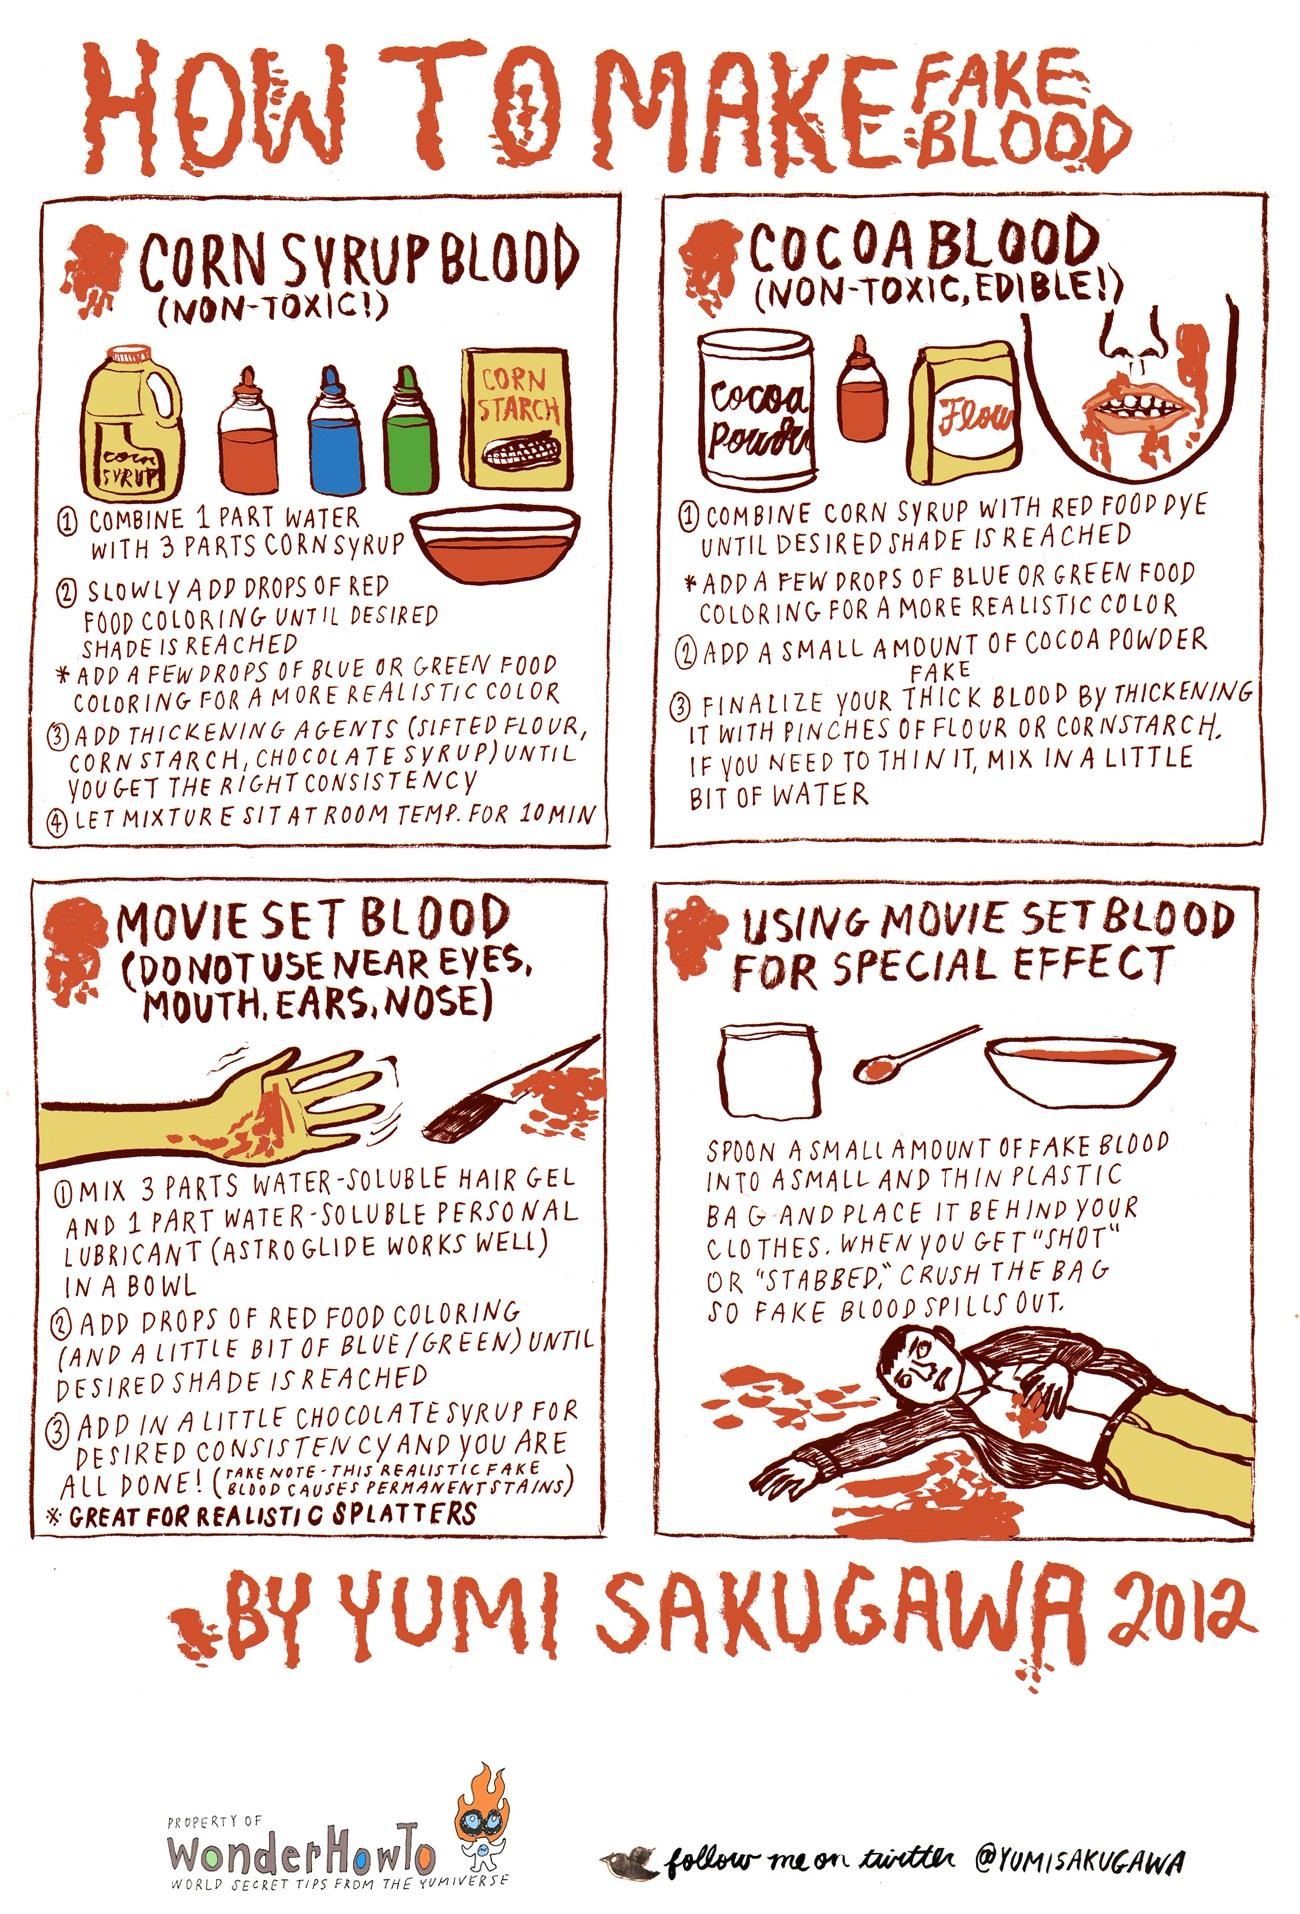 HOW TO MAKE FAKE BLOOD
CORN SYRUP BLOOD
(NON-TOXIC!)
corn
SYRUP
CORN
STARCH
① COMBINE 1 PART WATER
WITH 3 PARTS CORN SYRUP
② SLOWLY ADD DROPS OF RED
FOOD COLORING UNTIL DESIRED
SHADE IS REACHED
* ADD A FEW DROPS OF BLUE OR GREEN FOOD
COLORING FOR A MORE REALISTIC COLOR
③ ADD THICKENING AGENTS (SIFTED FLOUR,
CORN STARCH, CHOCOLATE SYRUP) UNTIL
YOU GET THE RIGHT CONSISTENCY
④ LET MIXTURE SIT AT ROOM TEMP. FOR 10 MIN
COCOA BLOOD
(NON-TOXIC, EDIBLE!)
Cocoa
Powder
Flour
① COMBINE CORN SYRUP WITH RED FOOD DYE
UNTIL DESIRED SHADE IS REACHED
* ADD A FEW DROPS OF BLUE OR GREEN FOOD
COLORING FOR A MORE REALISTIC COLOR
② ADD A SMALL AMOUNT OF COCOA POWDER
FAKE
③ FINALIZE YOUR THICK BLOOD BY THICKENING
IT WITH PINCHES OF FLOUR OR CORNSTARCH.
IF YOU NEED TO THIN IT, MIX IN A LITTLE
BIT OF WATER
MOVIE SET BLOOD
(DO NOT USE NEAR EYES,
MOUTH, EARS, NOSE)
① MIX 3 PARTS WATER-SOLUBLE HAIR GEL
AND 1 PART WATER-SOLUBLE PERSONAL
LUBRICANT (ASTROGLIDE WORKS WELL)
IN A BOWL
② ADD DROPS OF RED FOOD COLORING
(AND A LITTLE BIT OF BLUE/GREEN) UNTIL
DESIRED SHADE IS REACHED
③ ADD IN A LITTLE CHOCOLATE SYRUP FOR
DESIRED CONSISTENCY AND YOU ARE
ALL DONE! (TAKE NOTE - THIS REALISTIC FAKE
BLOOD CAUSES PERMANENT STAINS)
* GREAT FOR REALISTIC SPLATTERS
USING MOVIE SET BLOOD
FOR SPECIAL EFFECT
SPOON A SMALL AMOUNT OF FAKE BLOOD
INTO A SMALL AND THIN PLASTIC
BAG AND PLACE IT BEHIND YOUR
CLOTHES. WHEN YOU GET "SHOT"
OR "STABBED," CRUSH THE BAG
SO FAKE BLOOD SPILLS OUT.
BY YUMI SAKUGAWA 2012
PROPERTY OF
WonderHowTo
WORLD SECRET TIPS FROM THE YUMIVERSE
follow me on twitter @YUMISAKUGAWA